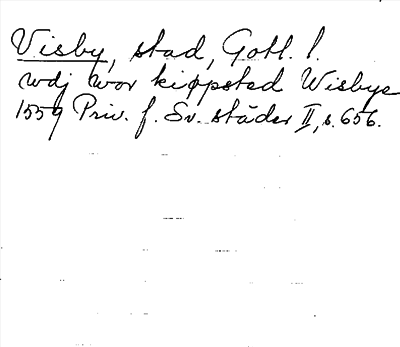 Visby, stad, Gotl. l.
wdj wor kiøpsted Wisbye
1559 Priv. f. Sv. städer II, s. 656.